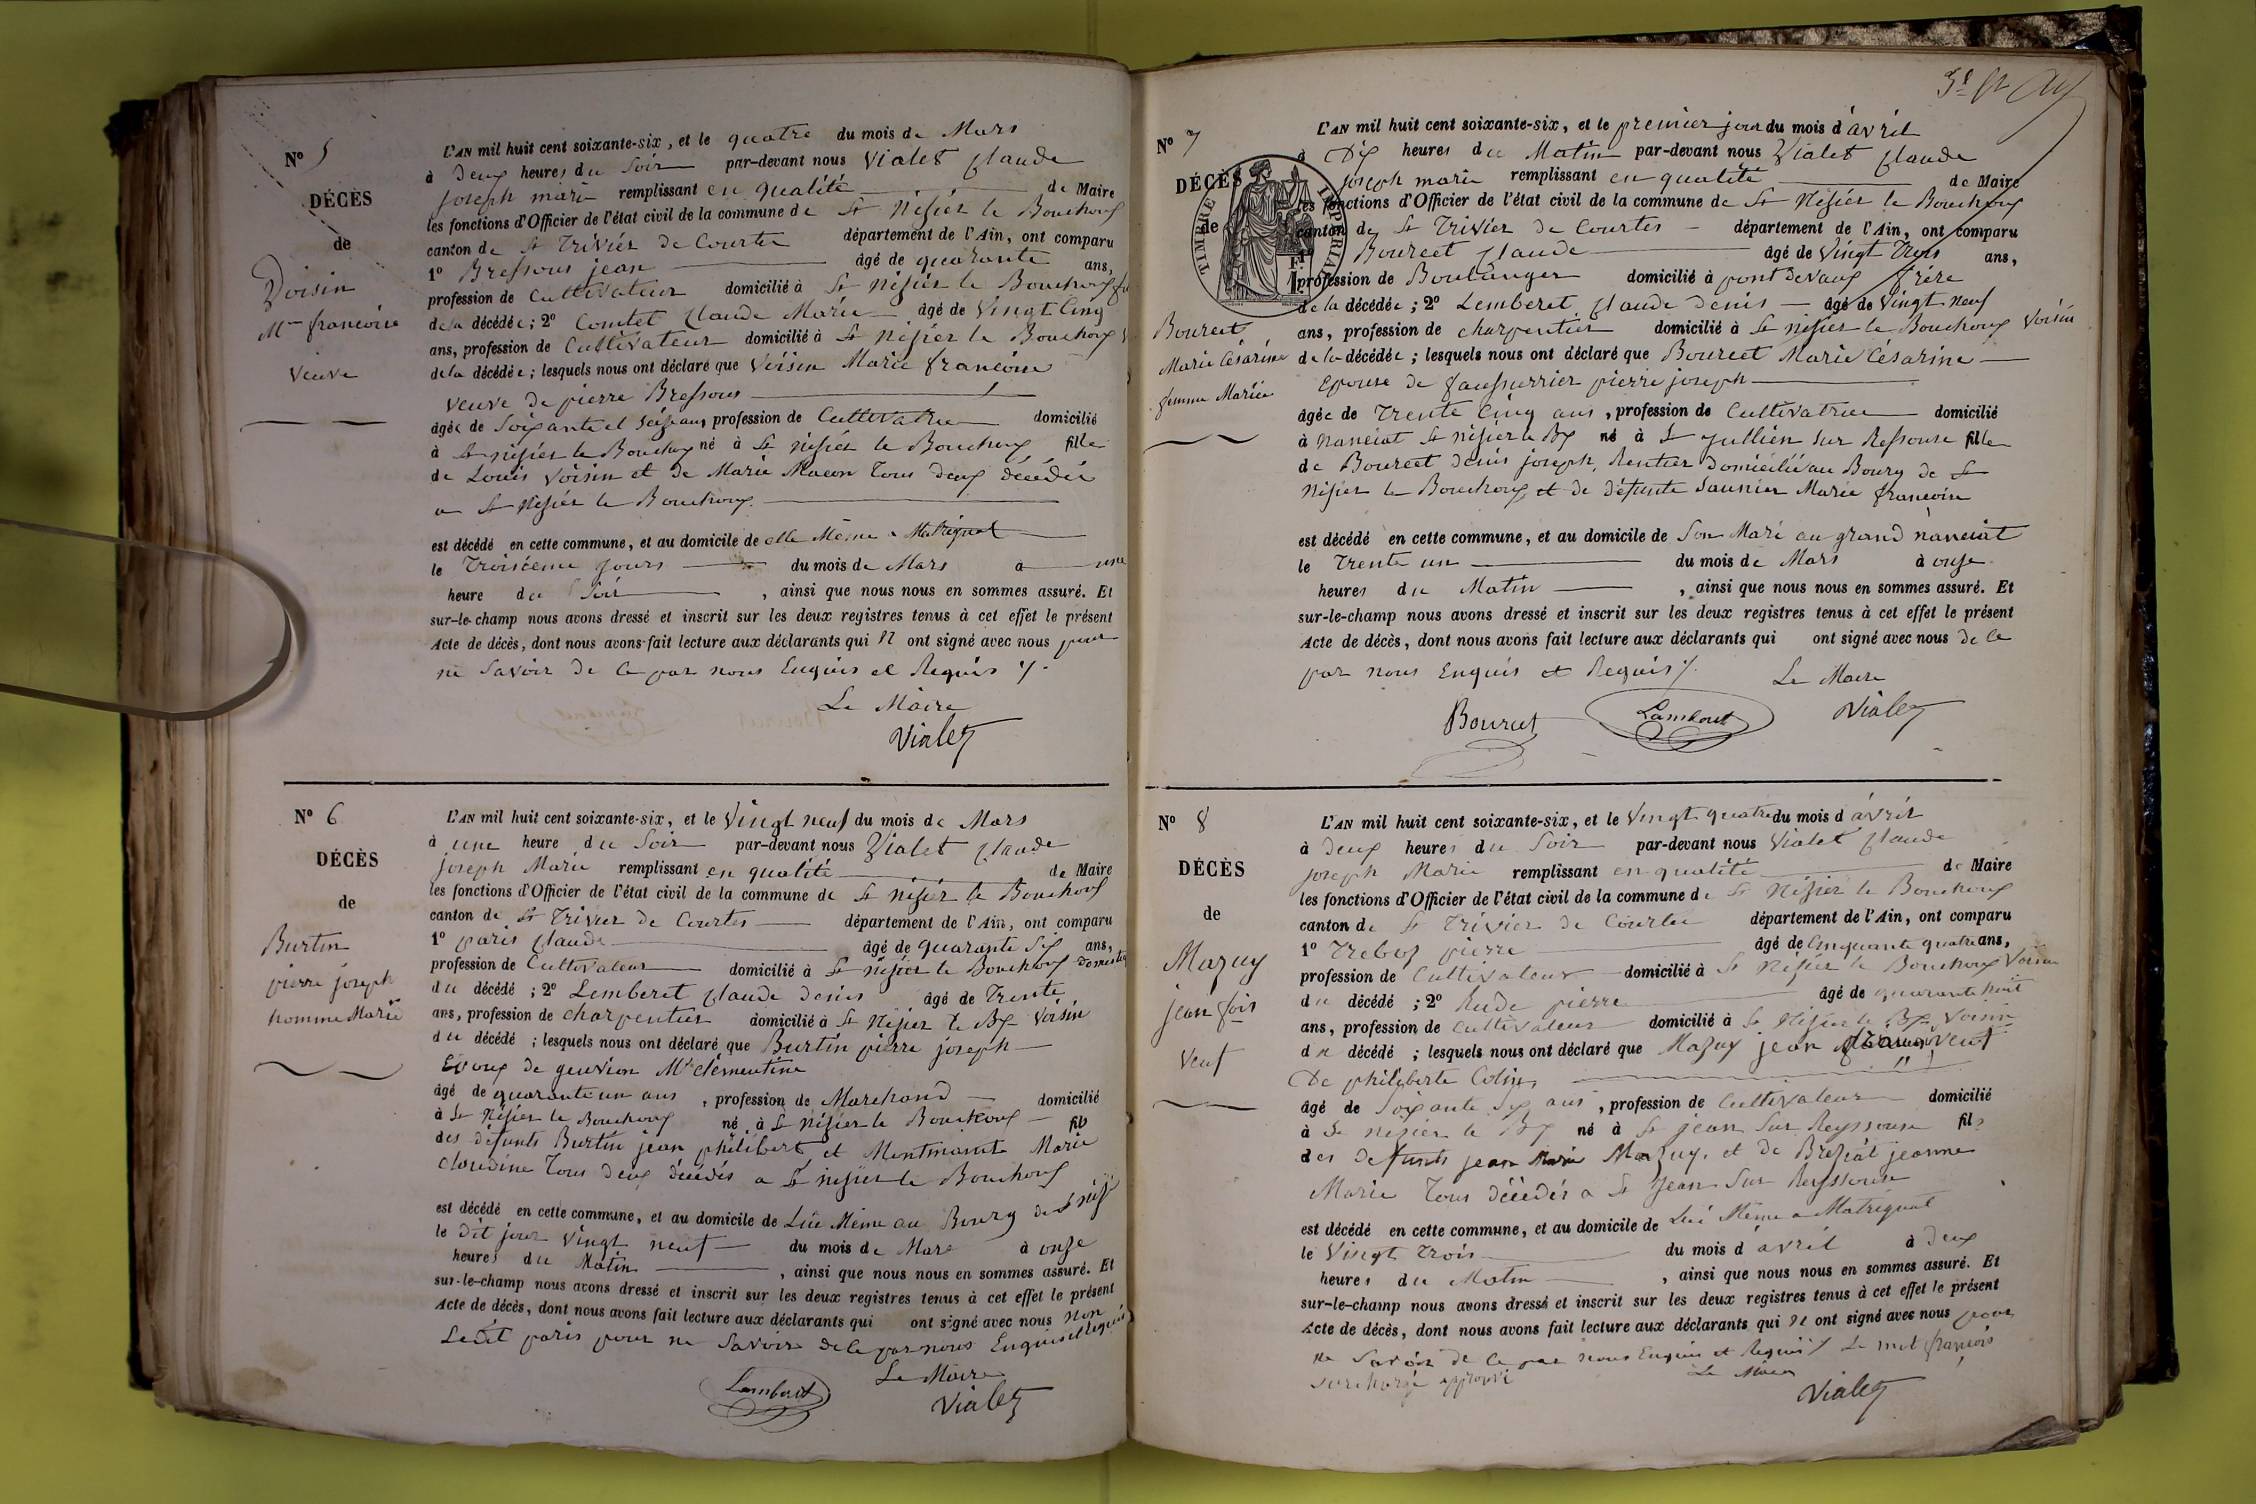 N° 5
DÉCÈS
de
Voisin
Mie françoise
veuve
L'AN mil huit cent soixante-six, et le quatre du mois de Mars
à Deux heures du Soir par-devant nous Vialet Claude
joseph marie remplissant en qualité de Maire
les fonctions d'Officier de l'état civil de la commune de St Nizier le Bouchoux
canton de St Trivier de Courtes département de l'Ain, ont comparu
1° Bressoux jean âgé de quarante ans,
profession de Cultivateur domicilié à St Nizier le Bouchoux
de la décédée; 2° Comtet Claude Marie âgé de Vingt Cinq
ans, profession de Cultivateur domicilié à St Nizier le Bouchoux
de la décédée; lesquels nous ont déclaré que Voisin Marie françoise
veuve de pierre Bressoux
âgée de Soixante et Seize ans profession de Cultivatrice domicilié
à St nizier le Bouchoux né à St nizier le Bouchoux fille
de Louis Voisin et de Marie Macon Tous deux décédés
a St Nizier le Bouchoux.
est décédé en cette commune, et au domicile de elle Même a Matrignat
le Troisième jours du mois de Mars à une
heure du Soir, ainsi que nous nous en sommes assuré. Et
sur-le-champ nous avons dressé et inscrit sur les deux registres tenus à cet effet le présent
Acte de décès, dont nous avons fait lecture aux déclarants qui n ont signé avec nous pour
ne Savoir de ce par nous Enquis et Requis
Le Maire
Vialet
N° 6
DÉCÈS
de
Burtin
pierre joseph
homme Marié
L'AN mil huit cent soixante-six, et le Vingt neuf du mois de Mars
à une heure du Soir par-devant nous Vialet Claude
joseph Marie remplissant en qualité de Maire
les fonctions d'Officier de l'état civil de la commune de St nizier le Bouchoux
canton de St Trivier de Courtes département de l'Ain, ont comparu
1° paris Claude âgé de quarante Six ans,
profession de Cultivateur domicilié à St nizier le Bouchoux
du décédé; 2° Lemberet Claude denis âgé de Trente
ans, profession de charpentier domicilié à St Nizier le Bx Voisin
du décédé; lesquels nous ont déclaré que Burtin pierre joseph
Epoux de geuvion Mie clémentine
âgé de quarante un ans, profession de Marchand domicilié
à St Nizier le Bouchoux né à St Nizier le Bouchoux fils
des défunts Burtin jean philibert et Montmaint Marie
Claudine Tous deux décédés a St nizier le Bouchoux
est décédé en cette commune, et au domicile de Lui Même au Bourg de
le dit jour Vingt neuf du mois de Mars à onze
heures du Matin, ainsi que nous nous en sommes assuré. Et
sur-le-champ nous avons dressé et inscrit sur les deux registres tenus à cet effet le présent
Acte de décès, dont nous avons fait lecture aux déclarants qui ont signé avec nous Non
Le dit paris pour ne Savoir de ce par nous Enquis et Requis
Le Maire
Lemberet
Vialet
N° 7
DÉCÈS
de
TIMBRE IMPÉRIAL
Bourcet
Marie Césarine
femme Mariée
L'AN mil huit cent soixante-six, et le premier jour du mois d'avril
à Dix heures du Matin par-devant nous Vialet Claude
joseph marie remplissant en qualité de Maire
les fonctions d'Officier de l'état civil de la commune de St Nizier le Bouchoux
canton de St Trivier de Courtes département de l'Ain, ont comparu
Bourcet Claude âgé de Vingt Trois ans,
profession de Boulanger domicilié à pont Devaux frère
de la décédée; 2° Lemberet Claude Denis âgé de Vingt neuf
ans, profession de charpentier domicilié à St nizier le Bouchoux Voisin
de la décédée; lesquels nous ont déclaré que Bourcet Marie Césarine
Epouse de faussurrier pierre joseph
âgée de Trente Cinq ans, profession de Cultivatrice domicilié
à Nanciat St nizier le Bx né à St jullien Sur Ressouse fille
de Bourcet denis joseph, Rentier Domicilié au Bourg de St
Nizier le Bouchoux, et de défunte Saunier Marie françoise
est décédé en cette commune, et au domicile de Son Mari au grand nanciat
le Trente un du mois de Mars à onze
heures du Matin, ainsi que nous nous en sommes assuré. Et
sur-le-champ nous avons dressé et inscrit sur les deux registres tenus à cet effet le présent
Acte de décès, dont nous avons fait lecture aux déclarants qui ont signé avec nous de ce
par nous Enquis et Requis
Le Maire
Bourcet
Lemberet
Vialet
N° 8
DÉCÈS
de
Mazuy
jean fois
Veuf
L'AN mil huit cent soixante-six, et le Vingt quatre du mois d'avril
à Deux heures du Soir par-devant nous Vialet Claude
joseph Marie remplissant en qualité de Maire
les fonctions d'Officier de l'état civil de la commune de St Nizier le Bouchoux
canton de St Trivier de Courtes département de l'Ain, ont comparu
1° Treboz pierre âgé de Cinquante quatre ans,
profession de Cultivateur domicilié à St Nizier le Bouchoux Voisin
du décédé; 2° Rude pierre âgé de quarante huit
ans, profession de Cultivateur domicilié à St Nizier le Bx Voisin
du décédé; lesquels nous ont déclaré que Mazuy jean françois Veuf
De philiberte Colin,
âgé de Soixante Six ans, profession de Cultivateur domicilié
à St nizier le Bx né à St jean Sur Reyssouse fils
des Défunts jean Marie Mazuy, et de Breziat jeanne
Marie Tous décédés a St Jean Sur Reyssouse
est décédé en cette commune, et au domicile de Lui Même a Matrignat
le Vingt Trois du mois d'avril à deux
heures du Matin, ainsi que nous nous en sommes assuré. Et
sur-le-champ nous avons dressé et inscrit sur les deux registres tenus à cet effet le présent
Acte de décès, dont nous avons fait lecture aux déclarants qui n ont signé avec nous pour
ne Savoir de ce par nous Enquis et Requis Le mot françois
surchargé approuvé
Le Maire
Vialet